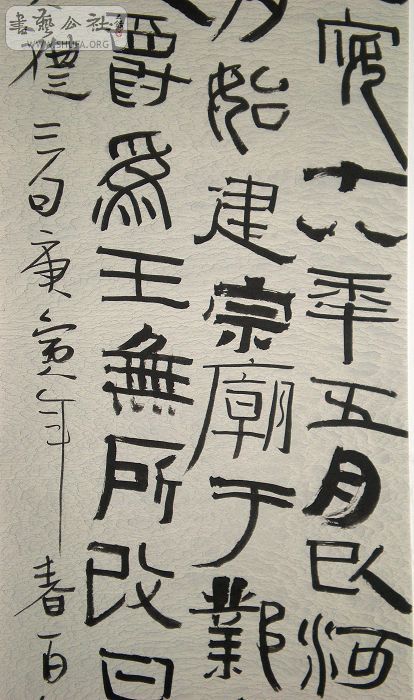 安十八年五月以河
月始建宗廟于鄴
爵為王無所改曰
三句庚寅年春百
書藝公社
WWW.SHUFA.ORG